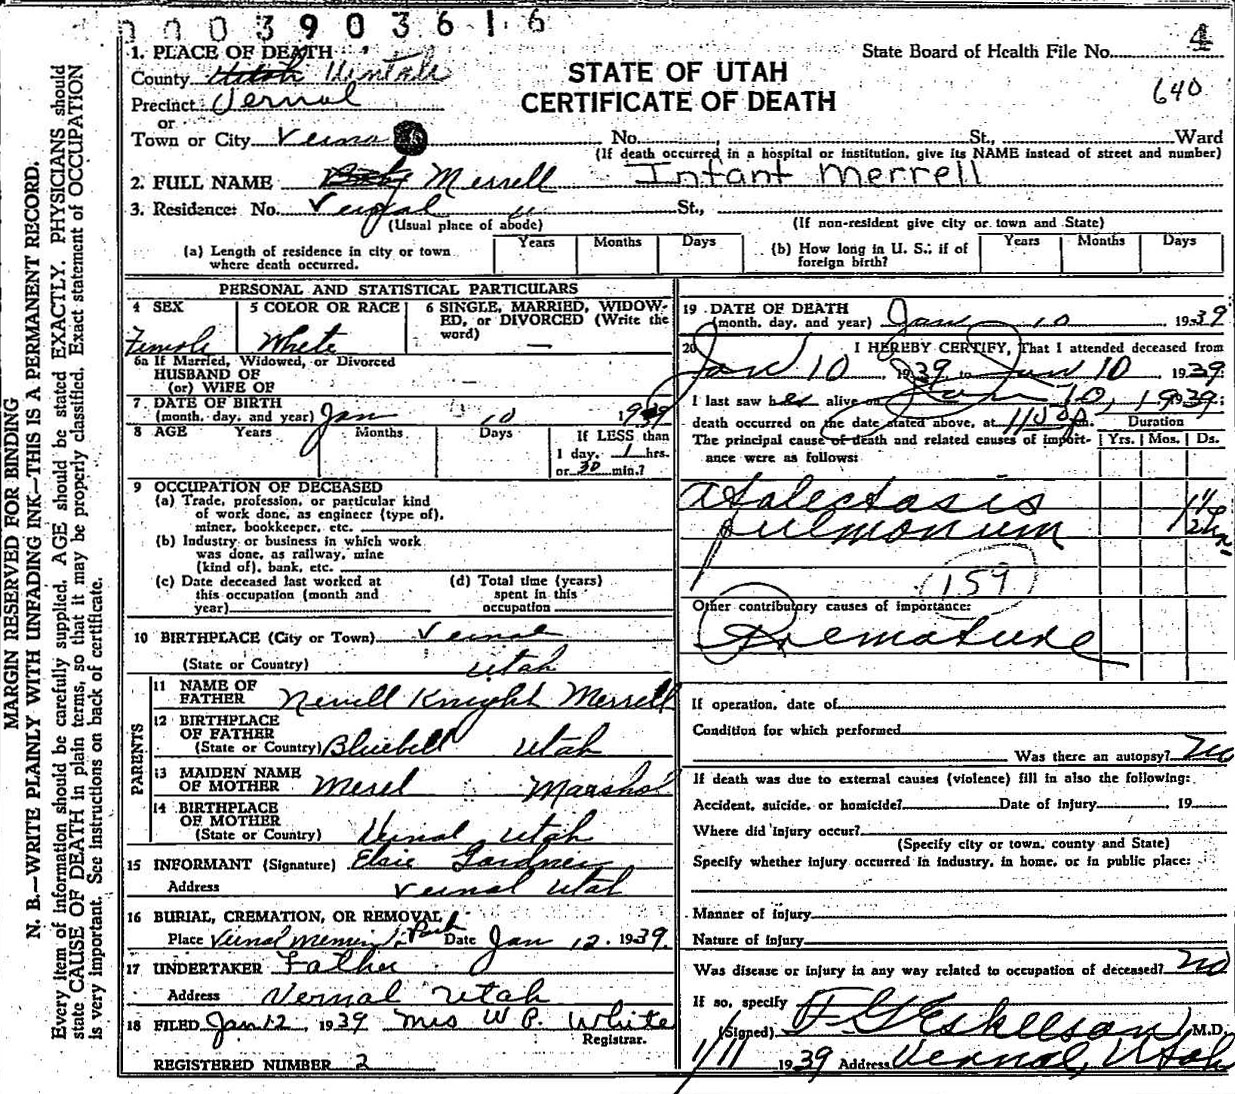 0003903616
4
640
1. PLACE OF DEATH
State Board of Health File No.
County Utah Uintah
STATE OF UTAH
CERTIFICATE OF DEATH
Precinct Vernal
or
Town or City Vernal No. St., Ward
(If death occurred in a hospital or institution, give its NAME instead of street and number)
2. FULL NAME Baby Merrell Infant Merrell
3. Residence: No. Vernal St.,
(Usual place of abode) (If non-resident give city or town and State)
(a) Length of residence in city or town where death occurred. Years Months Days
(b) How long in U. S.: if of foreign birth? Years Months Days
PERSONAL AND STATISTICAL PARTICULARS
4 SEX 5 COLOR OR RACE 6 SINGLE, MARRIED, WIDOWED, or DIVORCED (Write the word)
Female White —
6a If Married, Widowed, or Divorced
HUSBAND OF
(or) WIFE OF
7 DATE OF BIRTH
(month, day, and year) Jan 10 1939
8 AGE Years Months Days If LESS than
1 day, 1 hrs.
or 30 min.?
9 OCCUPATION OF DECEASED
(a) Trade, profession, or particular kind
of work done, as engineer (type of),
miner, bookkeeper, etc.
(b) Industry or business in which work
was done, as railway, mine
(kind of), bank, etc.
(c) Date deceased last worked at
this occupation (month and
year)
(d) Total time (years)
spent in this
occupation
10 BIRTHPLACE (City or Town) Vernal
(State or Country) Utah
PARENTS
11 NAME OF
FATHER Nevell Knight Merrell
12 BIRTHPLACE
OF FATHER
(State or Country) Bluebell Utah
13 MAIDEN NAME
OF MOTHER Merel Marshal
14 BIRTHPLACE
OF MOTHER
(State or Country) Vernal Utah
15 INFORMANT (Signature) Elsie Gardner
Address Vernal Utah
16 BURIAL, CREMATION, OR REMOVAL
Place Vernal Memorial Park Date Jan 12. 1939.
17 UNDERTAKER Father
Address Vernal Utah
18 FILED Jan 12, 1939 Mrs W P. White
Registrar.
REGISTERED NUMBER 2
19 DATE OF DEATH
(month, day, and year) Jan 10, 1939
20 I HEREBY CERTIFY, That I attended deceased from
Jan 10, 1939 to Jan 10, 1939.
I last saw her alive on Jan 10, 1939;
death occurred on the date stated above, at 11:50 P.m.
The principal cause of death and related causes of importance were as follows:
Duration
Yrs. Mos. Ds.
Atalectasis
pulmonum
1 1/2 hr
159
Other contributory causes of importance:
Premature
If operation, date of
Condition for which performed
Was there an autopsy? no
If death was due to external causes (violence) fill in also the following:
Accident, suicide, or homicide? Date of injury , 19
Where did injury occur?
(Specify city or town, county and State)
Specify whether injury occurred in industry, in home, or in public place:
Manner of injury
Nature of injury
Was disease or injury in any way related to occupation of deceased? no
If so, specify
(Signed) F G Eskelson, M.D.
1/11 1939 Address Vernal, Utah
MARGIN RESERVED FOR BINDING
N. B.—WRITE PLAINLY WITH UNFADING INK—THIS IS A PERMANENT RECORD.
Every item of information should be carefully supplied. AGE should be stated EXACTLY. PHYSICIANS should
state CAUSE OF DEATH in plain terms, so that it may be properly classified. Exact statement of OCCUPATION
is very important. See instructions on back of certificate.